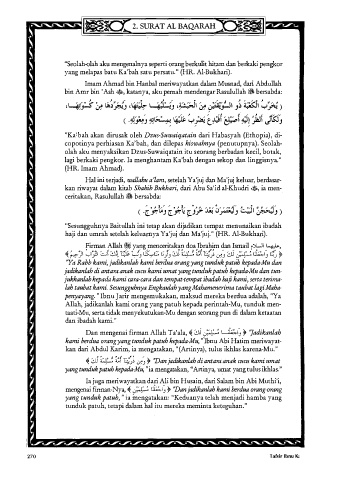 2. SURAT AL BAQARAH
"Seolah-olah aku mengenalnya seperti orang berkulit hitam dan berkaki pengkor
yang melapas batu Ka'bah satu persatu." (HR. Al-Bukhari).
Imam Ahmad bin Hanbal meriwayatkan dalam Musnad, dari Abdullah
bin Amr bin 'Ash ﷺ, katanya, aku pernah mendengar Rasulullah ﷺ bersabda:
( يُخَرِّبُ الْكَعْبَةَ ذُو السُّوَيْقَتَيْنِ مِنَ الْحَبَشَةِ، وَيَسْلُبُهَا حِلْيَتَهَا، وَيُجَرِّدُهَا مِنْ كِسْوَتِهَا،
وَلَكَأَنِّي أَنْظُرُ إِلَيْهِ أُصَيْلِعَ أُفَيْدِعَ يَضْرِبُ عَلَيْهَا بِمِسْحَاتِهِ وَمِعْوَلِهِ. )
"Ka'bah akan dirusak oleh Dzus-Suwaiqatain dari Habasyah (Ethopia), di-
copotinya perhiasan Ka'bah, dan dilepas kiswahnya (penutupnya). Seolah-
olah aku menyaksikan Dzus-Suwaiqatain itu seorang berbadan kecil, botak,
lagi berkaki pengkor. Ia menghantam Ka'bah dengan sekop dan linggisnya."
(HR. Imam Ahmad).
Hal ini terjadi, wallahu a'lam, setelah Ya'juj dan Ma'juj keluar, berdasar-
kan riwayat dalam kitab Shahih Bukhari, dari Abu Sa'id al-Khudri ﷺ, ia men-
ceritakan, Rasulullah ﷺ bersabda:
( وَلَيُحَجَّنَّ الْبَيْتُ وَلَيُعْتَمَرَنَّ بَعْدَ خُرُوجِ يَأْجُوجَ وَمَأْجُوجَ. )
"Sesungguhnya Baitullah ini tetap akan dijadikan tempat menunaikan ibadah
haji dan umrah setelah keluarnya Ya'juj dan Ma'juj." (HR. Al-Bukhari).
Firman Allah ﷻ yang menceritakan doa Ibrahim dan Ismail عليهما السلام
﴿ رَبَّنَا وَاجْعَلْنَا مُسْلِمَيْنِ لَكَ وَمِن ذُرِّيَّتِنَا أُمَّةً مُّسْلِمَةً لَّكَ وَأَرِنَا مَنَاسِكَنَا وَتُبْ عَلَيْنَا إِنَّكَ أَنتَ التَّوَّابُ الرَّحِيمُ ﴾
"Ya Rabb kami, jadikanlah kami berdua orang yang tunduk patuh kepada-Mu dan
jadikanlah di antara anak cucu kami umat yang tunduk patuh kepada-Mu dan tun-
jukkanlah kepada kami cara-cara dan tempat-tempat ibadah haji kami, serta terima-
lah taubat kami. Sesungguhnya Engkaulah yang Mahamenerima taubat lagi Maha-
penyayang." Ibnu Jarir mengemukakan, maksud mereka berdua adalah, "Ya
Allah, jadikanlah kami orang yang patuh kepada perintah-Mu, tunduk men-
taati-Mu, serta tidak menyekutukan-Mu dengan seorang pun di dalam ketaatan
dan ibadah kami."
Dan mengenai firman Allah Ta'ala, ﴿ وَاجْعَلْنَا مُسْلِمَيْنِ لَكَ ﴾ "Jadikanlah
kami berdua orang yang tunduk patuh kepada-Mu," Ibnu Abi Hatim meriwayat-
kan dari Abdul Karim, ia mengatakan, "(Artinya), tulus ikhlas karena-Mu."
﴿ وَمِن ذُرِّيَّتِنَا أُمَّةً مُّسْلِمَةً لَّكَ ﴾ "Dan jadikanlah di antara anak cucu kami umat
yang tunduk patuh kepada-Mu," ia mengatakan, "Artinya, umat yang tulus ikhlas."
Ia juga meriwayatkan dari Ali bin Husain, dari Salam bin Abi Muthi'i,
mengenai firman-Nya, ﴿ وَاجْعَلْنَا مُسْلِمَيْنِ ﴾ "Dan jadikanlah kami berdua orang-orang
yang tunduk patuh," ia mengatakan: "Keduanya telah menjadi hamba yang
tunduk patuh, tetapi dalam hal itu mereka meminta keteguhan."
270
Tafsir Ibnu K